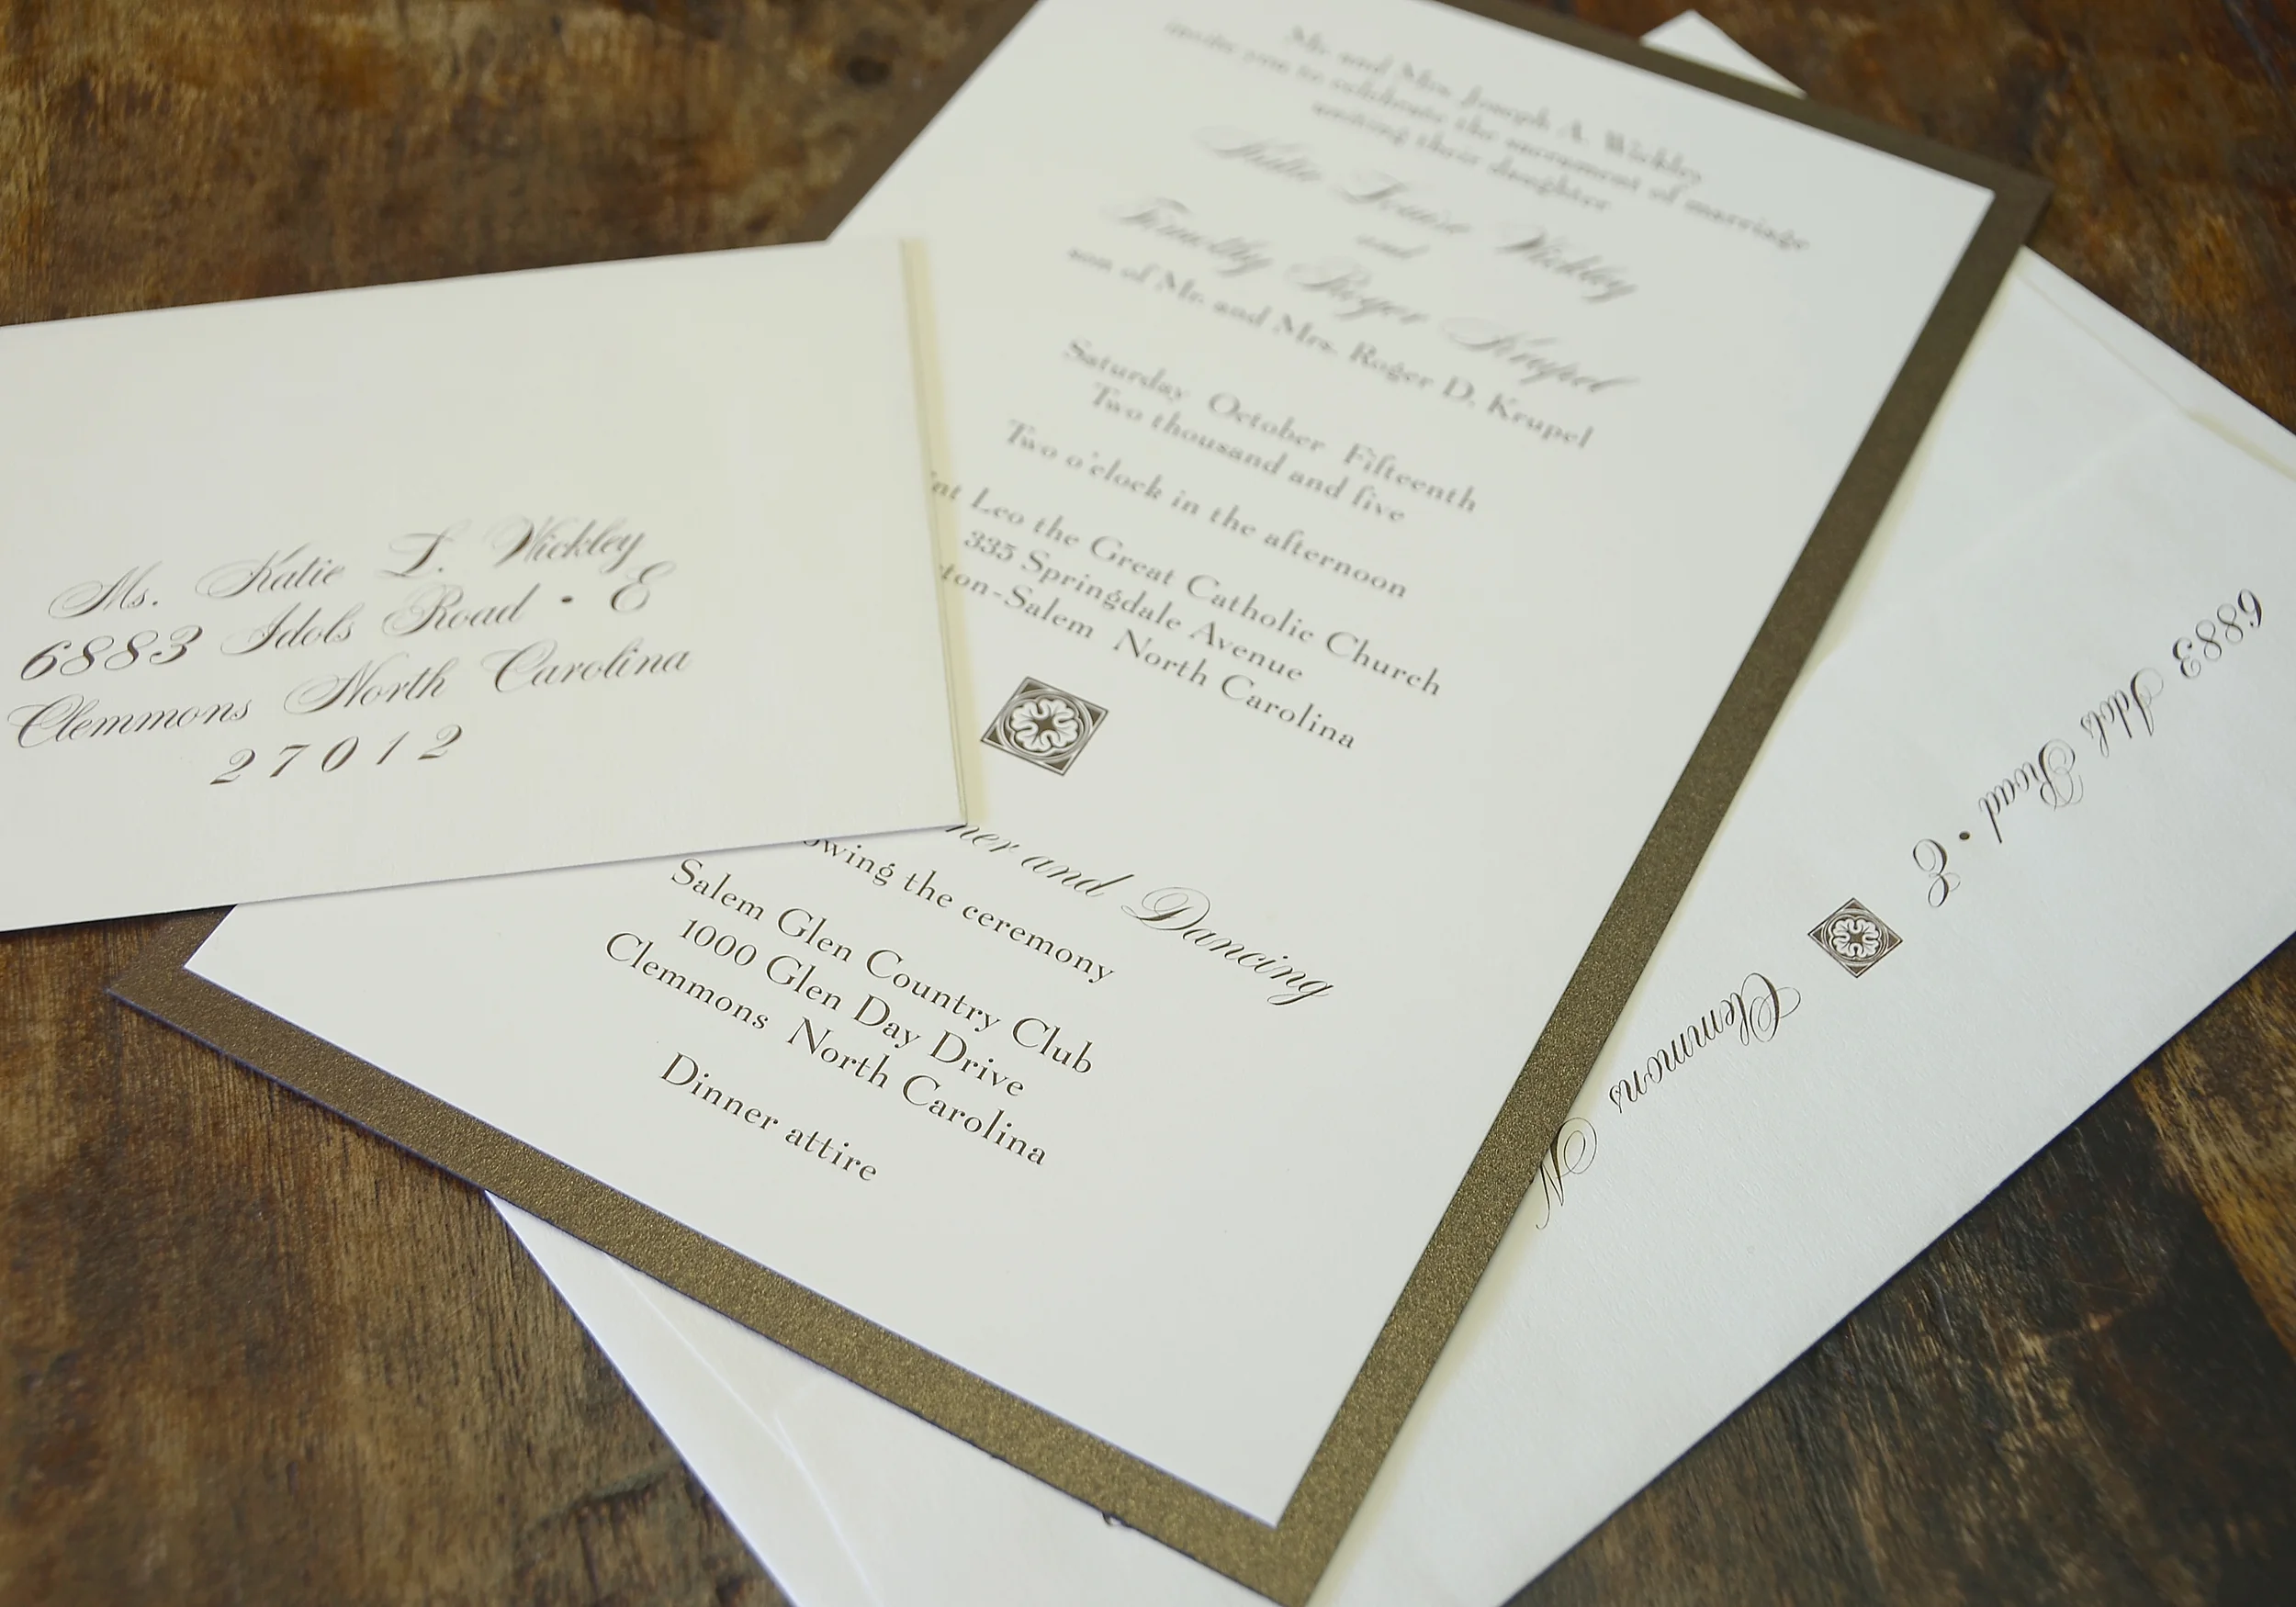 Mr. and Mrs. Joseph A. Wickley
invite you to celebrate the sacrament of marriage
uniting their daughter
Katie Louise Wickley
and
Timothy Roger Krupel
son of Mr. and Mrs. Roger D. Krupel
Saturday October Fifteenth
Two thousand and five
Two o'clock in the afternoon
int Leo the Great Catholic Church
335 Springdale Avenue
ton-Salem North Carolina
ner and Dancing
owing the ceremony
Salem Glen Country Club
1000 Glen Day Drive
Clemmons North Carolina
Dinner attire
Ms. Katie L. Wickley
6883 Idols Road • E
Clemmons North Carolina
27012
6883 Idols Road • E
Clemmons N